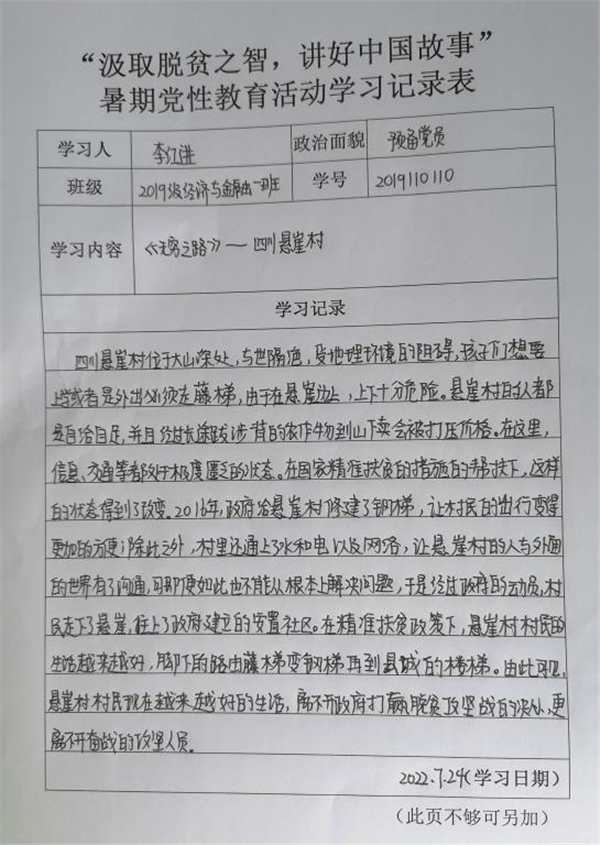 “汲取脱贫之智，讲好中国故事”
暑期党性教育活动学习记录表
学习人 李江进 政治面貌 预备党员
班级 2019级经济与金融一班 学号 2019110110
学习内容 《无穷之路》— 四川悬崖村
学习记录
四川悬崖村位于大山深处，与世隔绝，受地理环境的阻碍，孩子们想要
上学或者是外出必须走藤梯，由于在悬崖边上，上下十分危险。悬崖村的人都
是自给自足，并且经过长途跋涉背的农作物到山下卖会被打压价格。在这里，
信息、交通等都处于极度匮乏的状态。在国家精准扶贫的措施的帮扶下，这样
的状态得到了改变。2016年，政府给悬崖村修建了钢梯，让村民的出行变得
更加的方便；除此之外，村里还通上了水和电以及网络，让悬崖村的人与外面
的世界有了沟通，可即便如此也不能从根本上解决问题，于是经过政府的动员，村
民走下了悬崖，住上了政府建立的安置社区。在精准扶贫政策下，悬崖村村民的
生活越来越好，脚下的路由藤梯变钢梯再到县城的楼梯。由此可见，
悬崖村村民现在越来越好的生活，离不开政府打赢脱贫攻坚战的决心，更
离不开奋战的攻坚人员。
2022.7.24(学习日期)
（此页不够可另加）